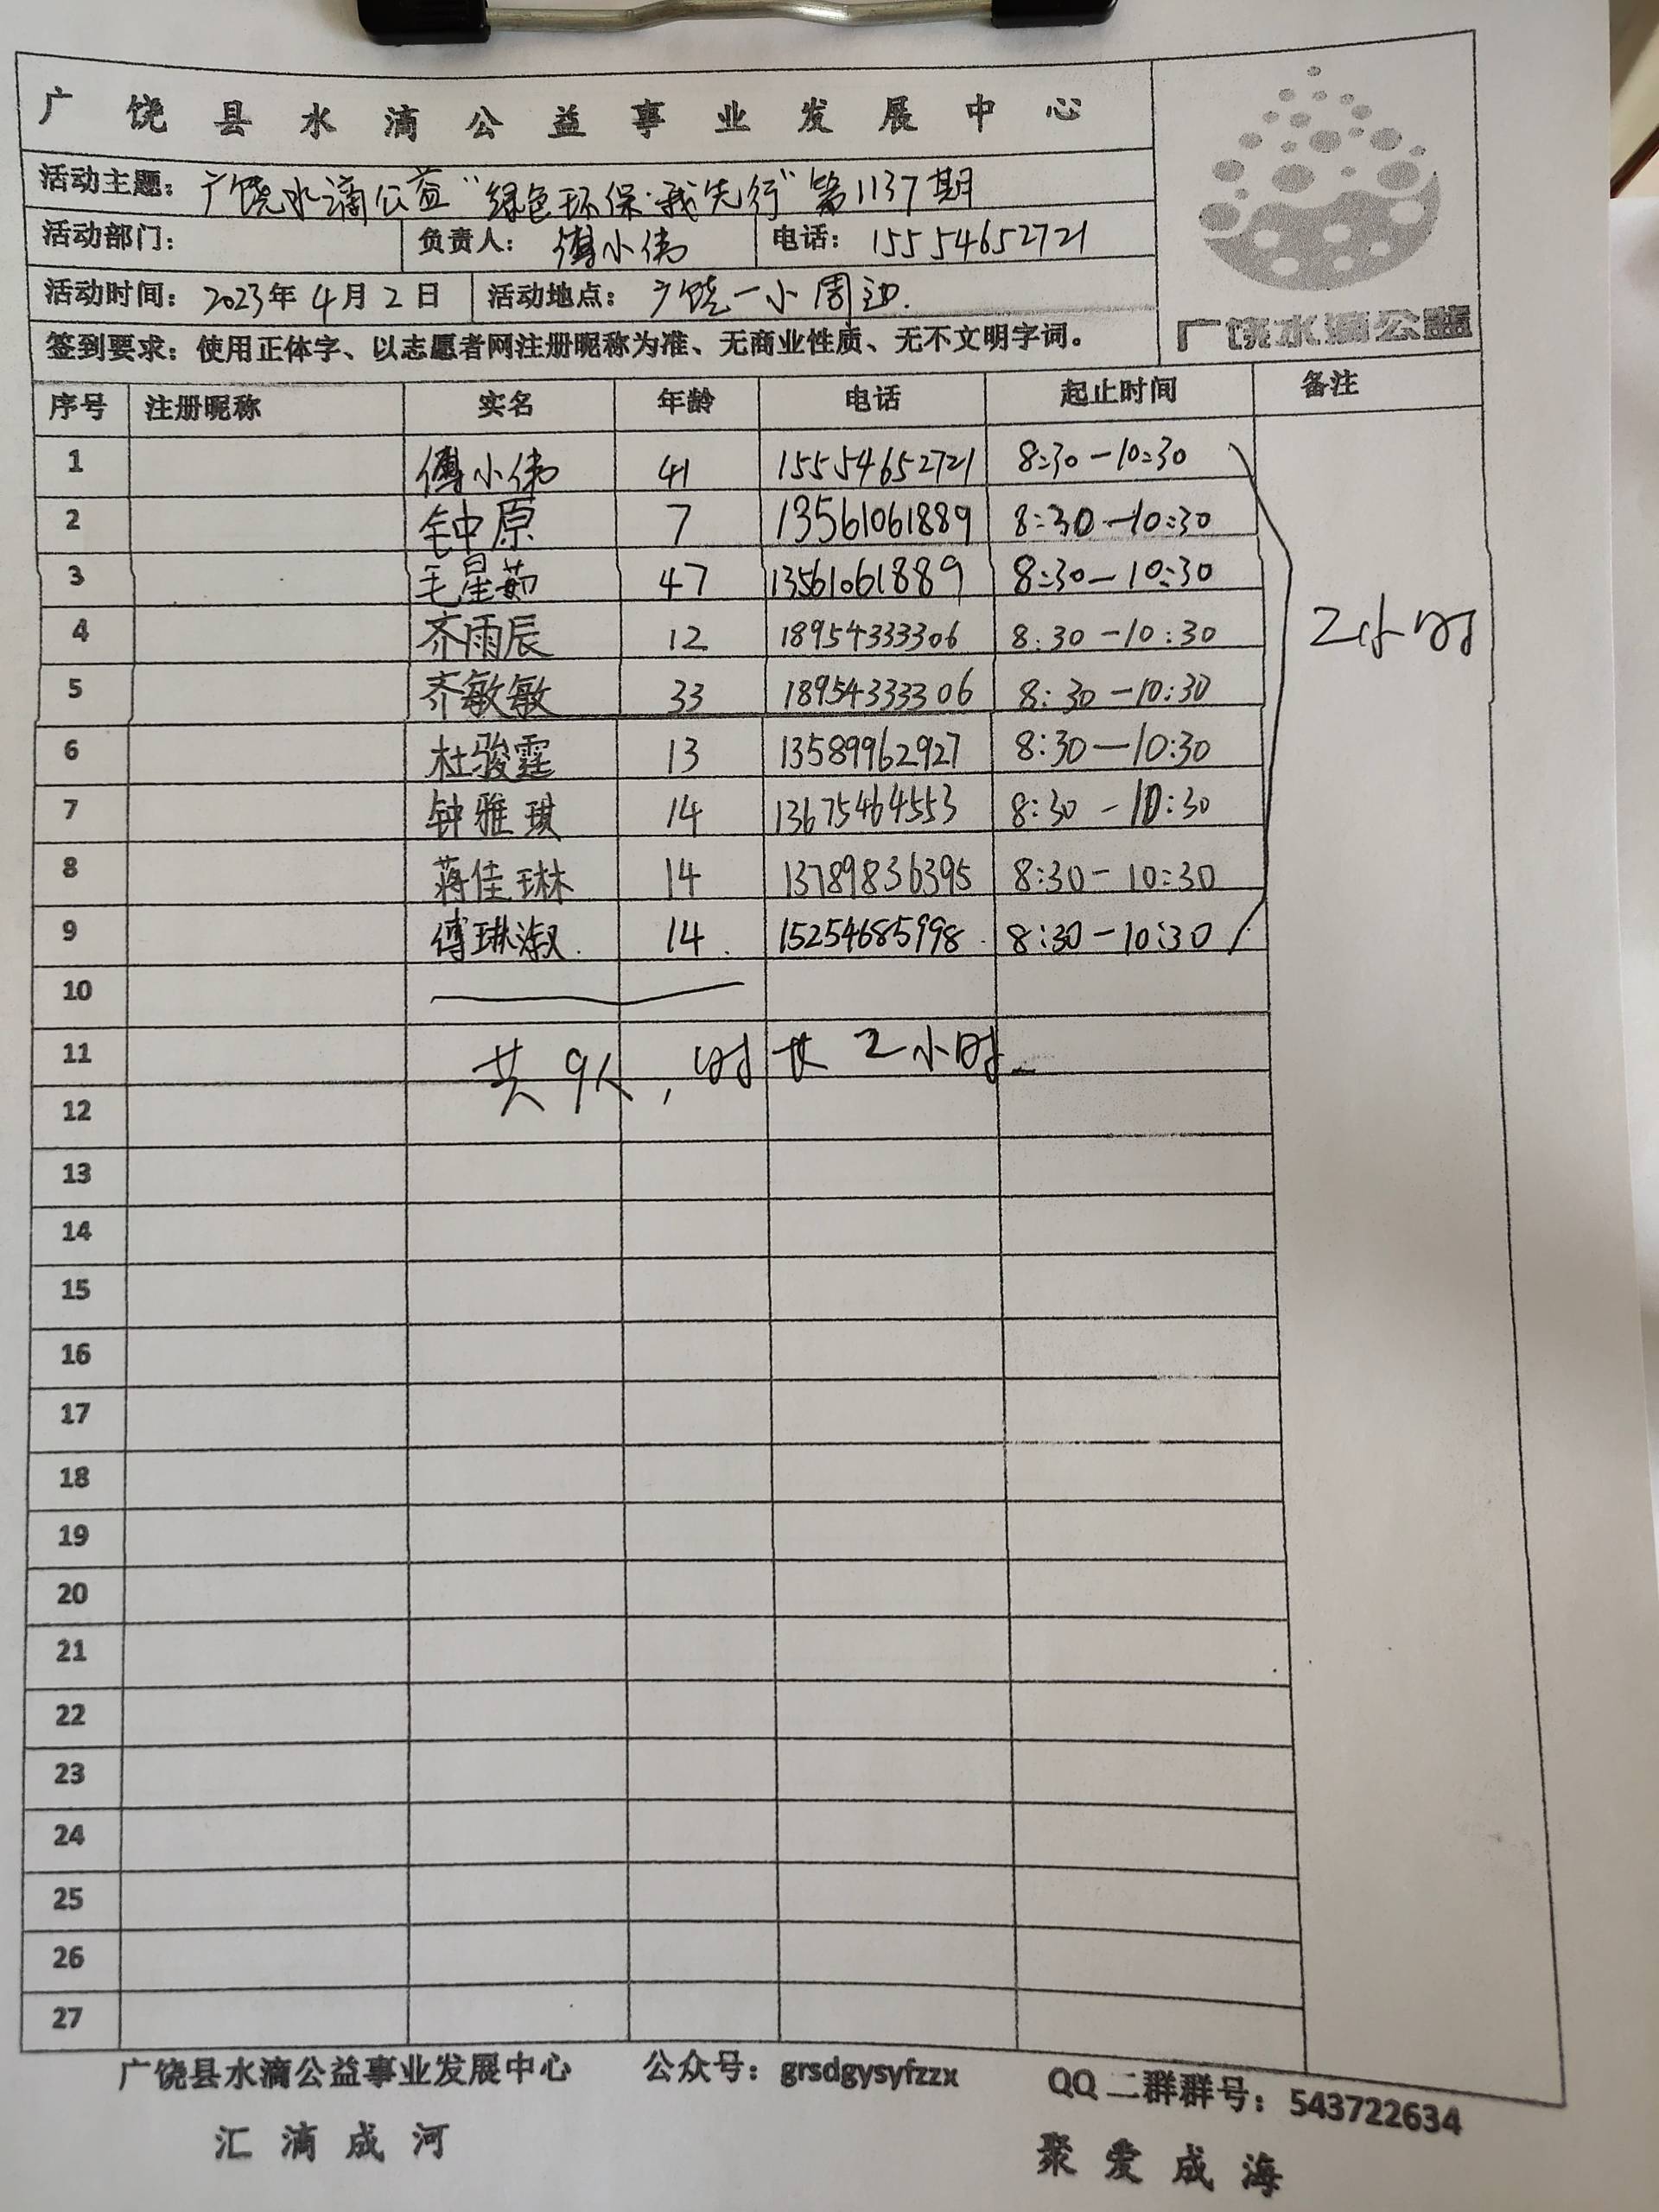 广饶县水滴公益事业发展中心
活动主题：广饶水滴公益“绿色环保·我先行”第1137期
活动部门： 负责人：傅小伟 电话：15554652721
活动时间：2023年4月2日 活动地点：广饶一小周边.
广饶水滴公益
签到要求：使用正体字、以志愿者网注册昵称为准、无商业性质、无不文明字词。
序号 注册昵称 实名 年龄 电话 起止时间 备注
1 傅小伟 41 15554652721 8:30-10:30
2 钟中原 7 13561061889 8:30-10:30
3 毛星茹 47 13561061889 8:30-10:30
2小时
4 齐雨辰 12 18954333306 8:30-10:30
5 齐敏敏 33 18954333306 8:30-10:30
6 杜骏霆 13 13589962927 8:30-10:30
7 钟雅琪 14 13675464553 8:30-10:30
8 蒋佳琳 14 13789836395 8:30-10:30
9 傅琳淑. 14. 15254685998. 8:30-10:30
10
11 共9人，时共2小时.
12
13
14
15
16
17
18
19
20
21
22
23
24
25
26
27
广饶县水滴公益事业发展中心 公众号：grsdgysyfzzx QQ二群群号：543722634
汇滴成河 聚爱成海